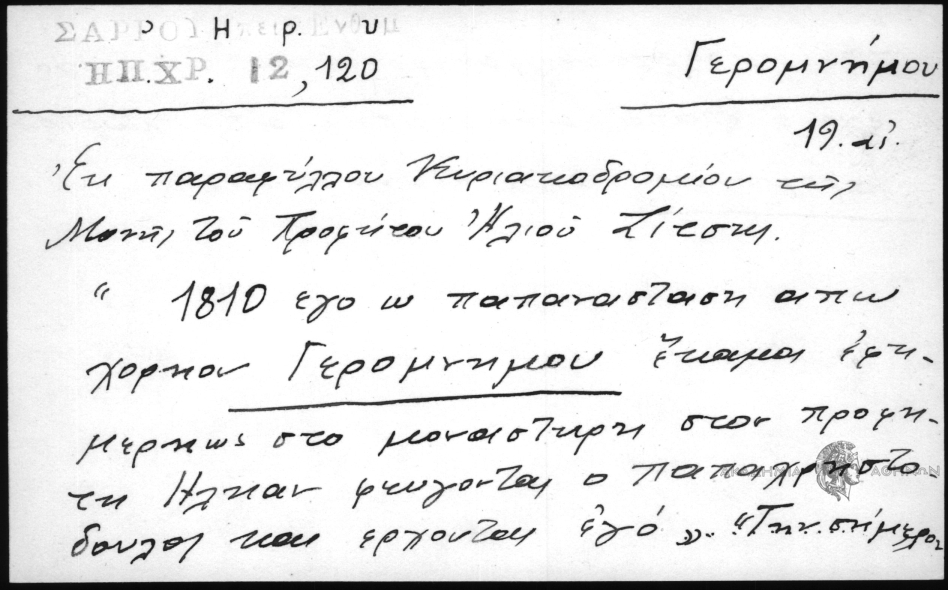 ΣΑΡΡΟΥ Ἠπειρ. Ἐνθυμ
ΗΠ.ΧΡ. 12, 120
Γερομνήμου
19. αἰ.
Ἐκ παραφύλλου Κυριακοδρομίου τῆς
Μονῆς τοῦ Προφήτου Ἠλιού Σίτσης.
“ 1810 εγο ω παπαναστασι απω
χορηον Γερομνημου ἔκαμα ἐφη-
μερηως στο μοναστηρη στον προφη-
τη Ηληαν φευγοντας ο παπαχρηστο
δουλος και ερχονται ἐγό ». “Την σήμερον
ΑΚΑΔΗΜΙΑ ΑΘΗΝΩΝ